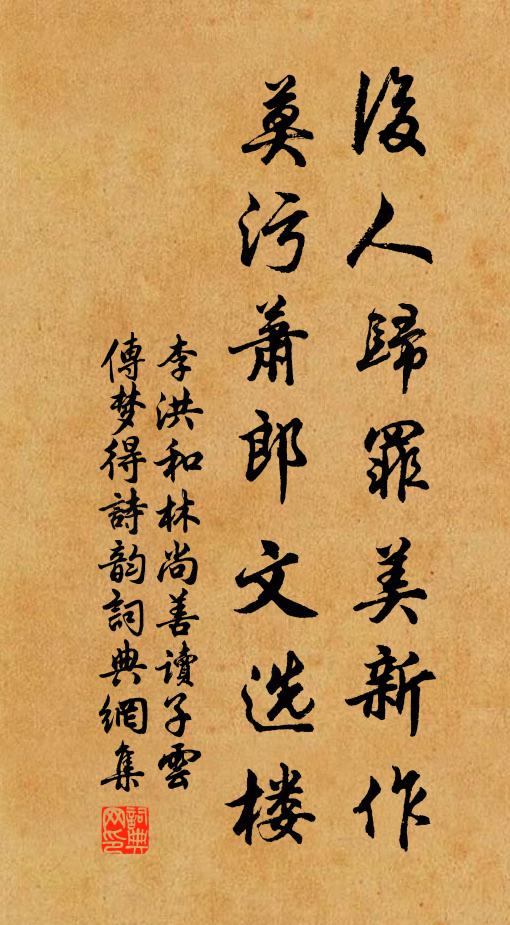 後人歸罪美新作
莫污蕭郎文选楼
李洪和林尚善讀子雲
傳梦得詩韵詞典網集
詞典網印